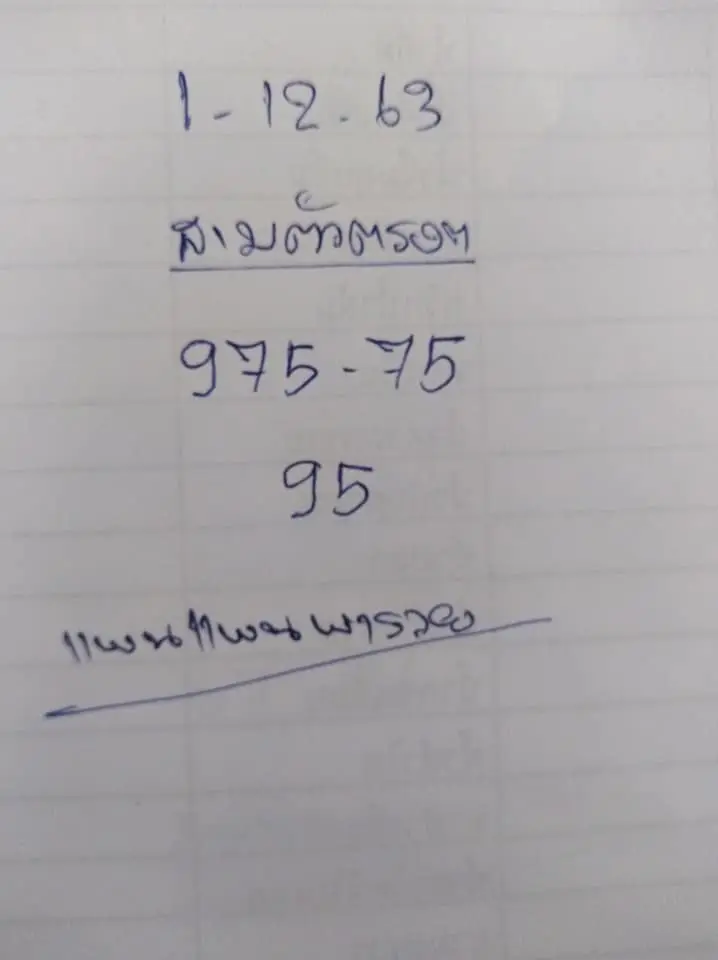 1-12-63
สามตัวตรงๆ
975-75
95
แพนแพนพารวย